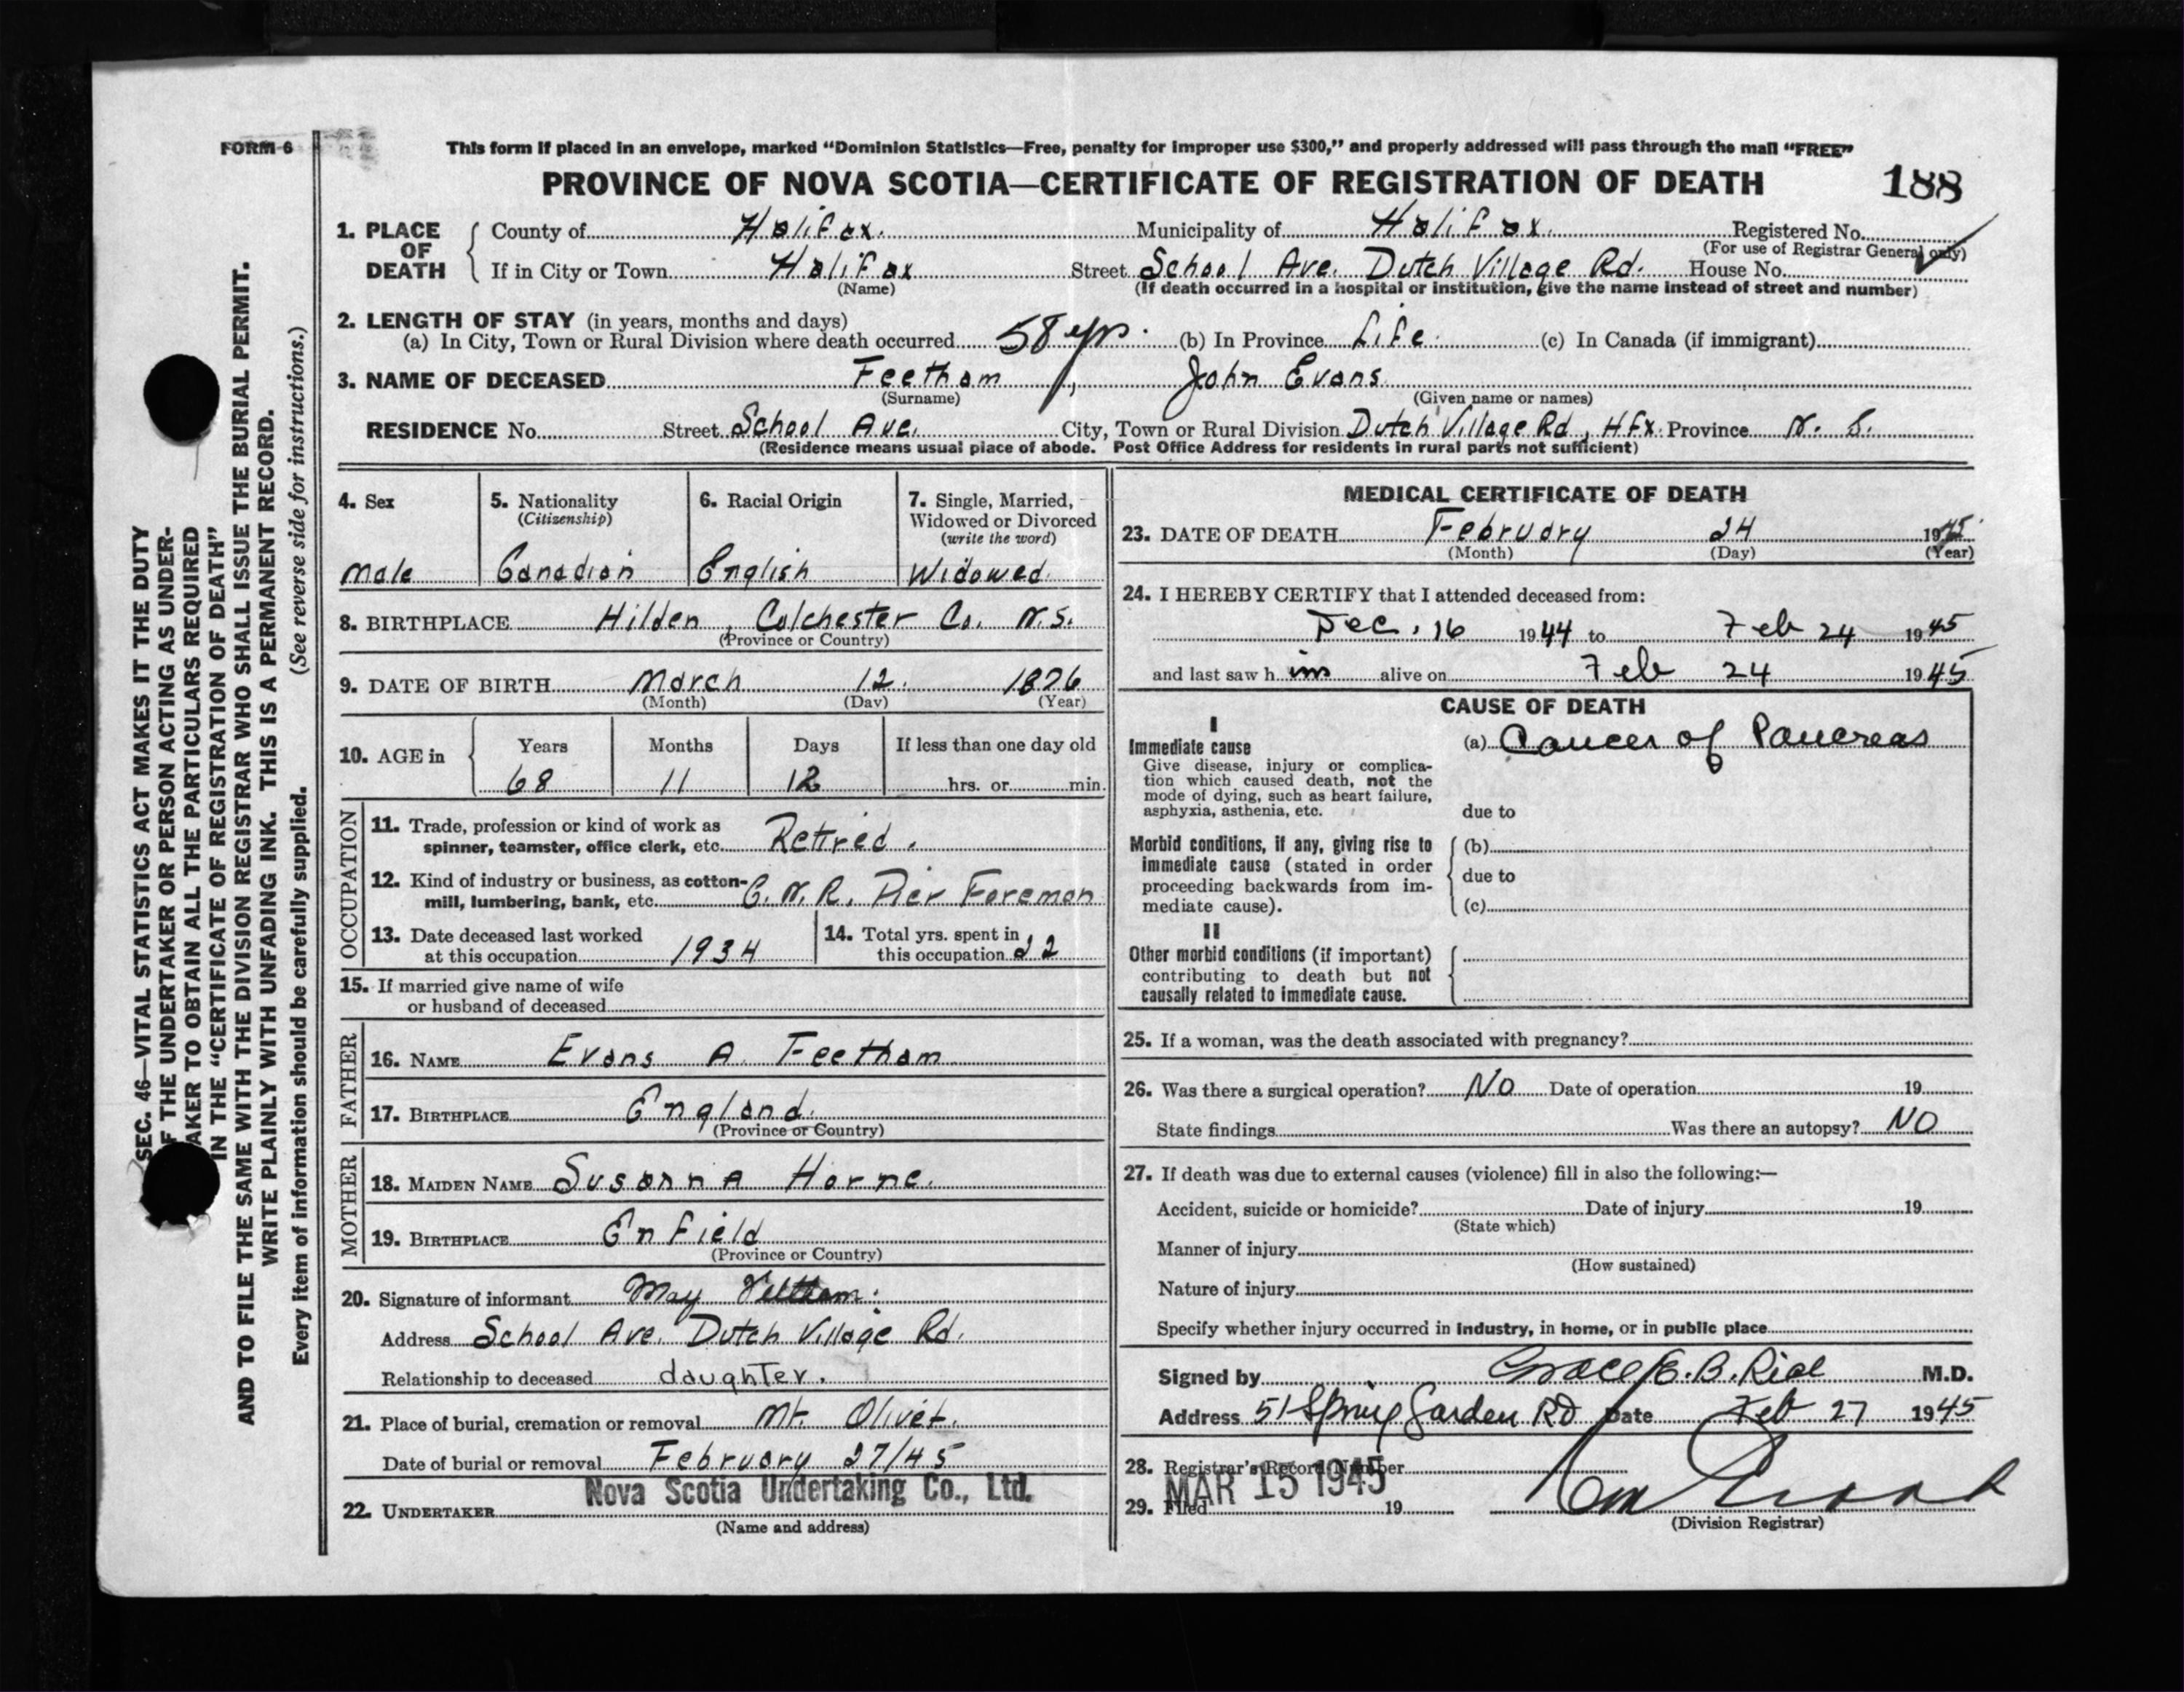 FORM 6
This form if placed in an envelope, marked “Dominion Statistics—Free, penalty for improper use $300,” and properly addressed will pass through the mail “FREE”
PROVINCE OF NOVA SCOTIA—CERTIFICATE OF REGISTRATION OF DEATH 188
1. PLACE OF DEATH
County of Halifax. Municipality of Halifax. Registered No.
(For use of Registrar General only)
If in City or Town Halifax Street School Ave. Dutch Village Rd. House No.
(Name) (If death occurred in a hospital or institution, give the name instead of street and number)
2. LENGTH OF STAY (in years, months and days)
(a) In City, Town or Rural Division where death occurred 58 yrs. (b) In Province Life. (c) In Canada (if immigrant)
3. NAME OF DECEASED Feetham, John Evans
(Surname) (Given name or names)
RESIDENCE No. Street School Ave. City, Town or Rural Division Dutch Village Rd, Hfx. Province N. S.
(Residence means usual place of abode. Post Office Address for residents in rural parts not sufficient)
4. Sex
Male
5. Nationality
(Citizenship)
Canadian
6. Racial Origin
English
7. Single, Married,
Widowed or Divorced
(write the word)
Widowed.
8. BIRTHPLACE Hilden, Colchester Co. N.S.
(Province or Country)
9. DATE OF BIRTH March 12. 1876
(Month) (Day) (Year)
10. AGE in
Years Months Days If less than one day old
68 11 12 hrs. or min.
OCCUPATION
11. Trade, profession or kind of work as
spinner, teamster, office clerk, etc. Retired.
12. Kind of industry or business, as cotton-
mill, lumbering, bank, etc. C.N.R. Pier Foreman
13. Date deceased last worked
at this occupation 1934
14. Total yrs. spent in
this occupation 22
15. If married give name of wife
or husband of deceased
FATHER
16. NAME Evans A Feetham
17. BIRTHPLACE England.
(Province or Country)
MOTHER
18. MAIDEN NAME Susanna Horne.
19. BIRTHPLACE Enfield
(Province or Country)
20. Signature of informant May Feetham.
Address School Ave. Dutch Village Rd.
Relationship to deceased daughter.
21. Place of burial, cremation or removal Mt. Olivet.
Date of burial or removal February 27/45
Nova Scotia Undertaking Co., Ltd.
22. UNDERTAKER
(Name and address)
MEDICAL CERTIFICATE OF DEATH
23. DATE OF DEATH February 24 1945
(Month) (Day) (Year)
24. I HEREBY CERTIFY that I attended deceased from:
Dec. 16 1944 to Feb 24 1945
and last saw h im alive on Feb 24 1945
CAUSE OF DEATH
I
Immediate cause (a) Cancer of Pancreas
Give disease, injury or complica-
tion which caused death, not the
mode of dying, such as heart failure,
asphyxia, asthenia, etc. due to
Morbid conditions, if any, giving rise to (b)
immediate cause (stated in order
proceeding backwards from im- due to
mediate cause). (c)
II
Other morbid conditions (if important)
contributing to death but not
causally related to immediate cause.
25. If a woman, was the death associated with pregnancy?
26. Was there a surgical operation? No Date of operation 19
State findings Was there an autopsy? NO
27. If death was due to external causes (violence) fill in also the following:—
Accident, suicide or homicide? Date of injury 19
(State which)
Manner of injury
(How sustained)
Nature of injury
Specify whether injury occurred in industry, in home, or in public place
Signed by Grace E. B. Rice M.D.
Address 51 Spring Garden RD Date Feb 27 1945
28. Registrar's Record Number
MAR 15 1945
29. Filed 19
(Division Registrar)
SEC. 46—VITAL STATISTICS ACT MAKES IT THE DUTY
OF THE UNDERTAKER OR PERSON ACTING AS UNDER-
TAKER TO OBTAIN ALL THE PARTICULARS REQUIRED
IN THE “CERTIFICATE OF REGISTRATION OF DEATH”
AND TO FILE THE SAME WITH THE DIVISION REGISTRAR WHO SHALL ISSUE THE BURIAL PERMIT.
WRITE PLAINLY WITH UNFADING INK. THIS IS A PERMANENT RECORD.
Every item of information should be carefully supplied. (See reverse side for instructions.)